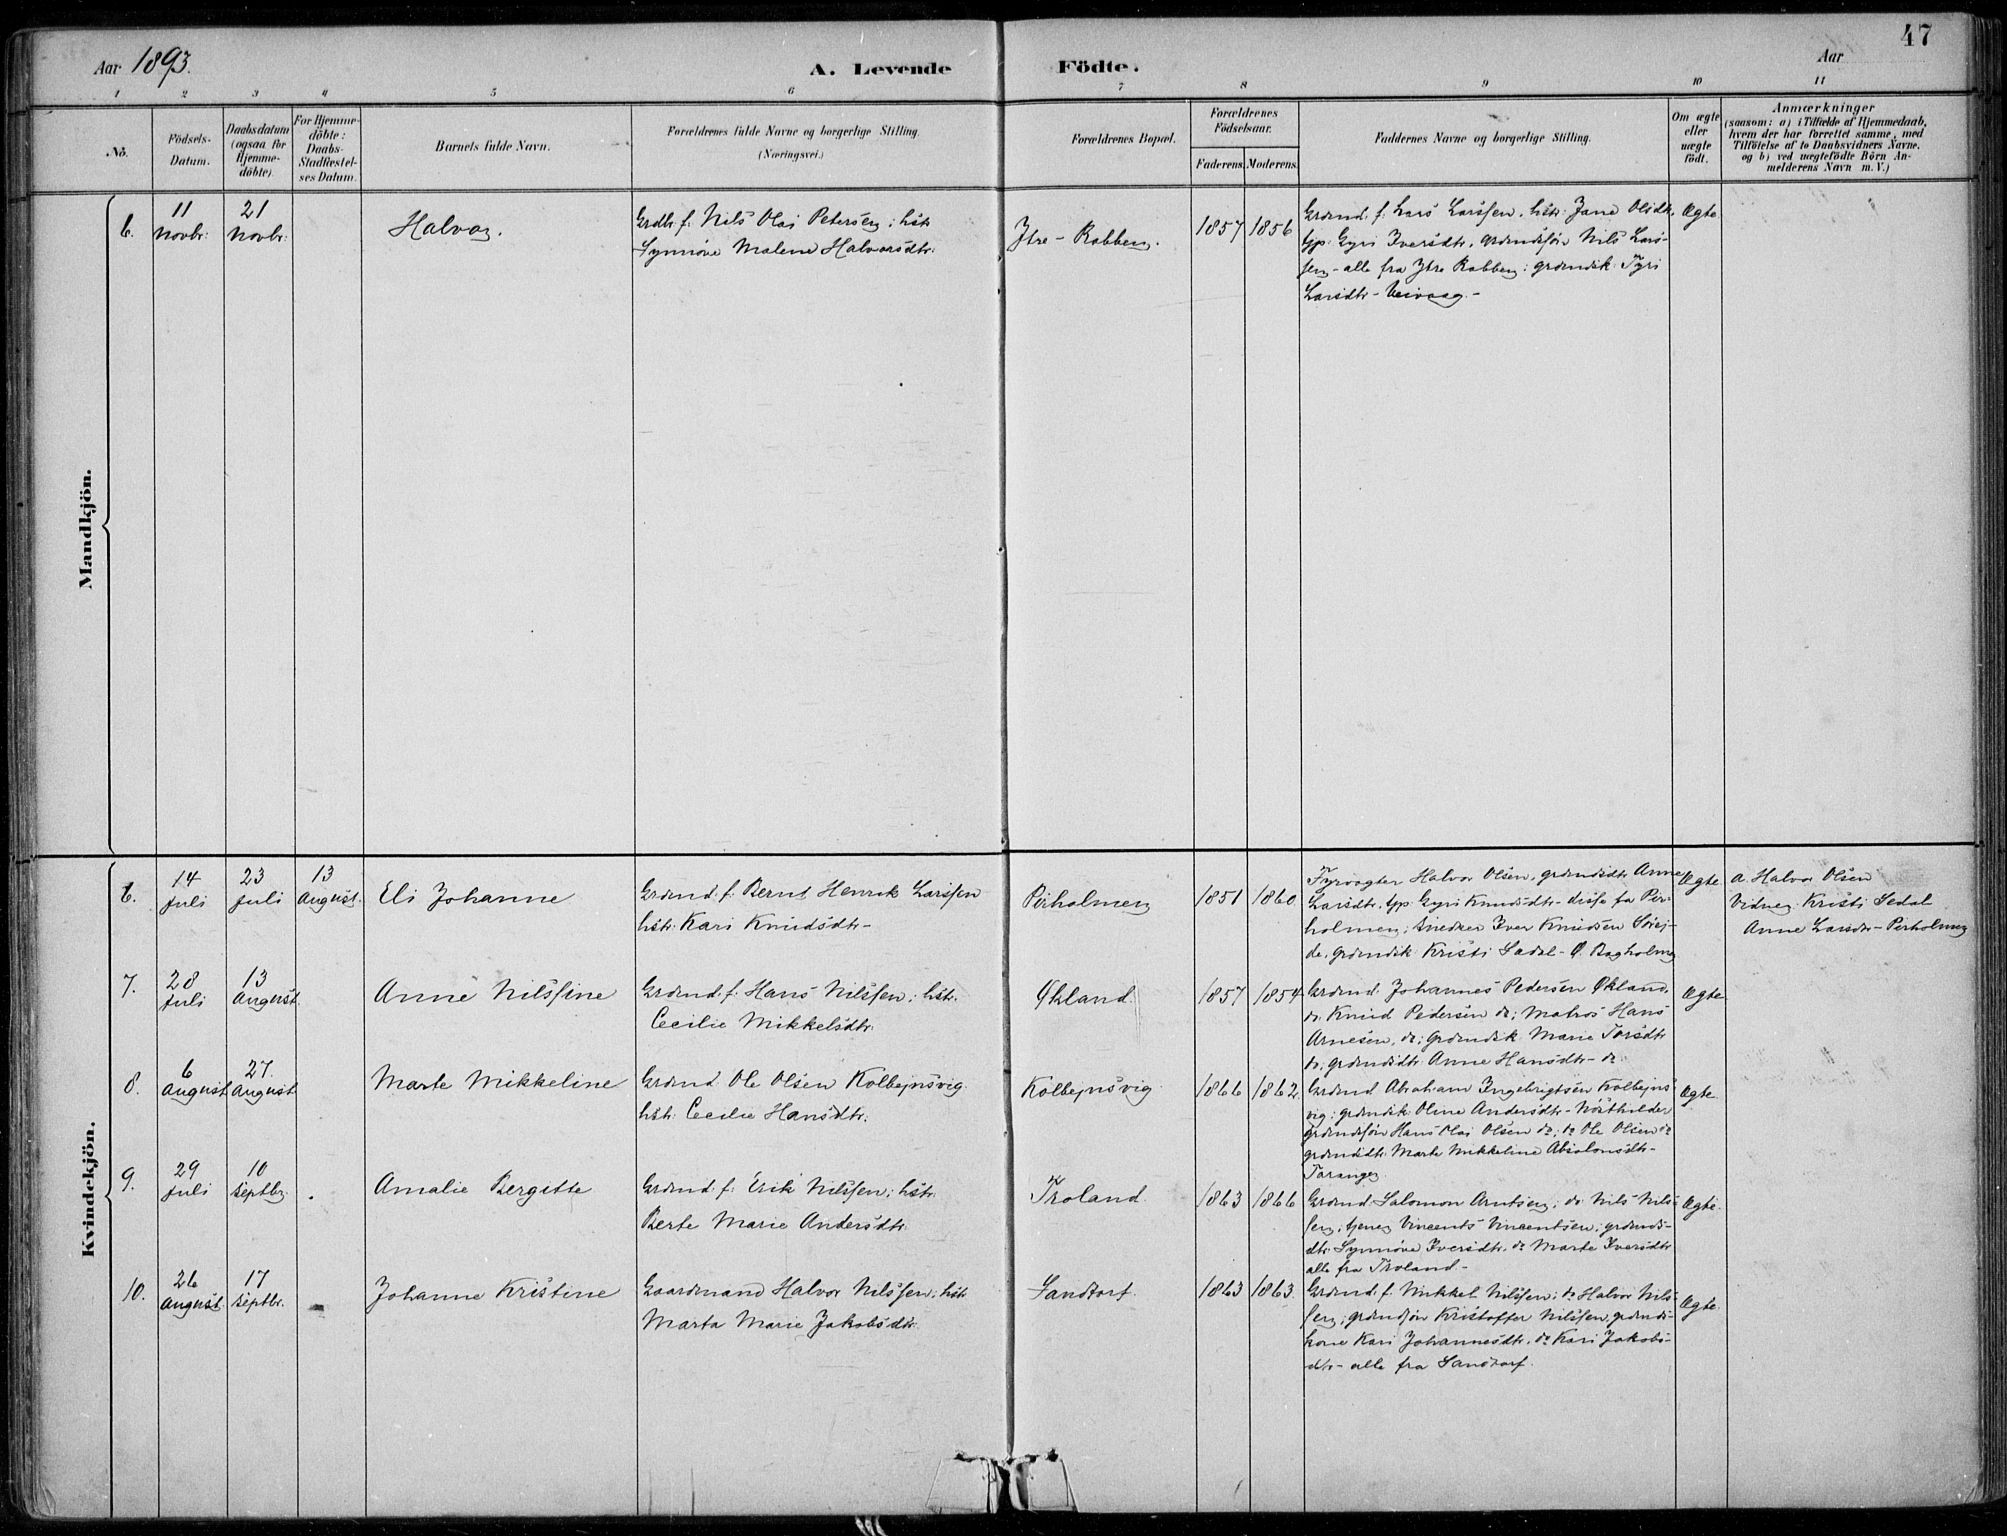 47
Aar 1893.
A. Levende Födte.
Aar
1 2 3 4 5 6 7 8 9 10 11
No.
Födsels-
Datum.
Daabsdatum
(ogsaa for
Hjemme-
döbte).
For Hjemme-
döbte:
Daabs-
Stadfæstel-
ses Datum.
Barnets fulde Navn.
Forældrenes fulde Navne og borgerlige Stilling.
(Næringsvei.)
Forældrenes Bopæl.
Forældrenes
Födselsaar.
Faderens. Moderens.
Faddernes Navne og borgerlige Stilling.
Om ægte
eller
uægte
født.
Anmærkninger
(saasom: a) i Tilfælde af Hjemmedaab,
hvem der har forrettet samme, med
Tilföielse af to Daabsvidners Navne,
og b) ved uægtefödte Börn An-
melderens Navn m. V.)
Mandkjön.
6.
11
Novbr:
21
Novbr:
Halvor.
Grdbr. f: Nils Olai Petersen; hstr
Synnöve Malene Halvorsdtr.
Ytre - Robben.
1857 1856
Grdmd. f: Lars Larssen, hstr: Jane Olsdtr,
tjp. Gyri Iversdtr, grdmdssön Nils Lars-
sen - alle fra Ytre Robben; grdmdsk: Gyri
Larsdtr - Veivaag. -
Ægte
Kvindekjön.
6.
14
Juli
23
Juli
13
August.
Eli Johanne
Grdmd. f: Bernt Henrik Larssen
hstr: Kari Knudsdtr -
Pirholmen
1851 1860
Fyrvogter Halvor Olsen, grdmdsdtr Anne
Larsdtr, tjp: Gyri Knudsdtr - disse fra Pir-
holmen; snedker Iver Knudsen Sörei-
de, grdmdsk: Kristi Sadal - Ø. Bagholmen
Ægte
a. Halvor Olsen
Vidner: Kristi Sedal
Anne Larsdtr - Pirholmen
7.
28
Juli
13
August
Anne Nilssine
Grdmd. f: Hans Nilssen; hstr.
Cecilie Mikkelsdtr.
Økland.
1857 1854
Grdmd. Johannes Pedersen Økland,
do. Knud Pedersen do; Matros Hans
Arnesen, do; grdmdsk Marie Torsdtr
do, grdmdsdtr: Anne Hansdtr - do.
Ægte
8.
6
August
27.
August
Marte Mikkeline
Grdmd. Ole Olsen Kolbejnsvig
hstr: Cecilie Hansdtr.
Kolbejnsvig
1866 1862.
Grdmd. Abraham Ingebrigtsen Kolbejns-
vig; grdmdsk: Oline Andersdtr - Nösthilder
grdmdssön Hans Olai Olsen do; do Ole Olsen do
grdmdsdtr. Marte Mikkeline Absalonsdtr -
Taranger
Ægte
9.
29
Juli
10
Septbr.
Amalie Bergitte
Grdmd. f: Erik Nilssen; hstr.
Berte Marie Andersdtr.
Troland.
1863 1866
Grdmd. Salomon Arntsen; do. Nils Nils-
sen; tjener Vincents Vincentsen; grdmds-
dtr. Synnöve Iversdtr, do Marte Iversdtr
alle fra Troland. -
Ægte.
10.
26
August.
17
Septbr.
Johanne Kristine
Gaardmand Halvor Nilssen; hstr
Marta Marie Jakobsdtr.
Sandtorf.
1863 1863.
Grdmd. f. Mikkel Nilssen; do Halvor Nils-
sen; grdmdssön Kristoffer Nilssen, grdmds-
kone Kari Johannesdtr, do Kari Jakobs-
dtr - alle fra Sandtorf.
Ægte.